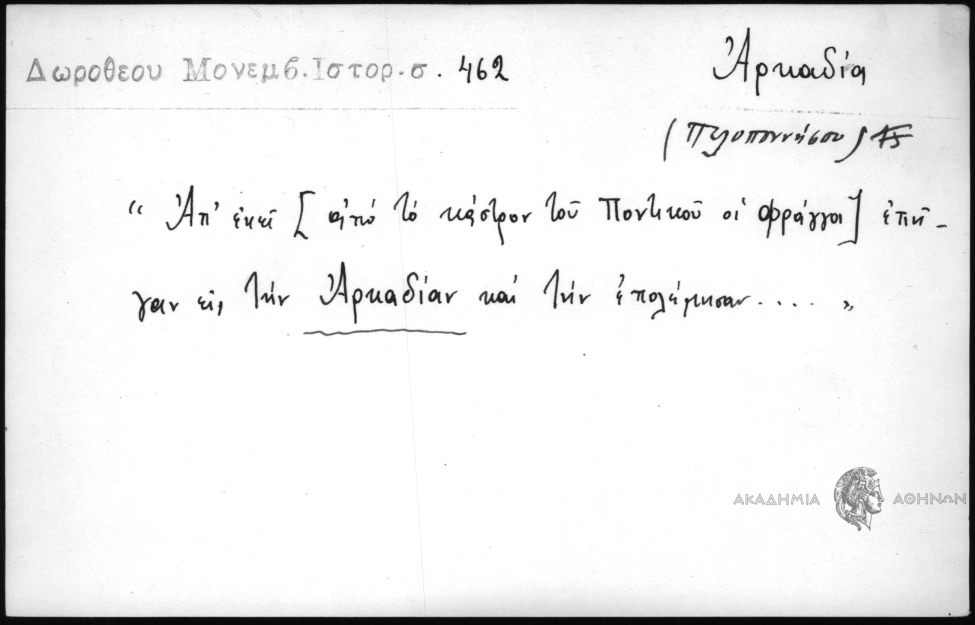 Δωροθεου Μονεμβ. Ιστορ. σ. 462
Ἀρκαδία
(Πελοποννήσου)
“ Ἀπ' ἐκεῖ [ ἀπό τό κάστρον τοῦ Ποντικοῦ οἱ Φράγγοι] ἐπῆ-
γαν εἰς τήν Ἀρκαδίαν καί τήν ἐπολέμησαν.... ”
ΑΚΑΔΗΜΙΑ ΑΘΗΝΩΝ